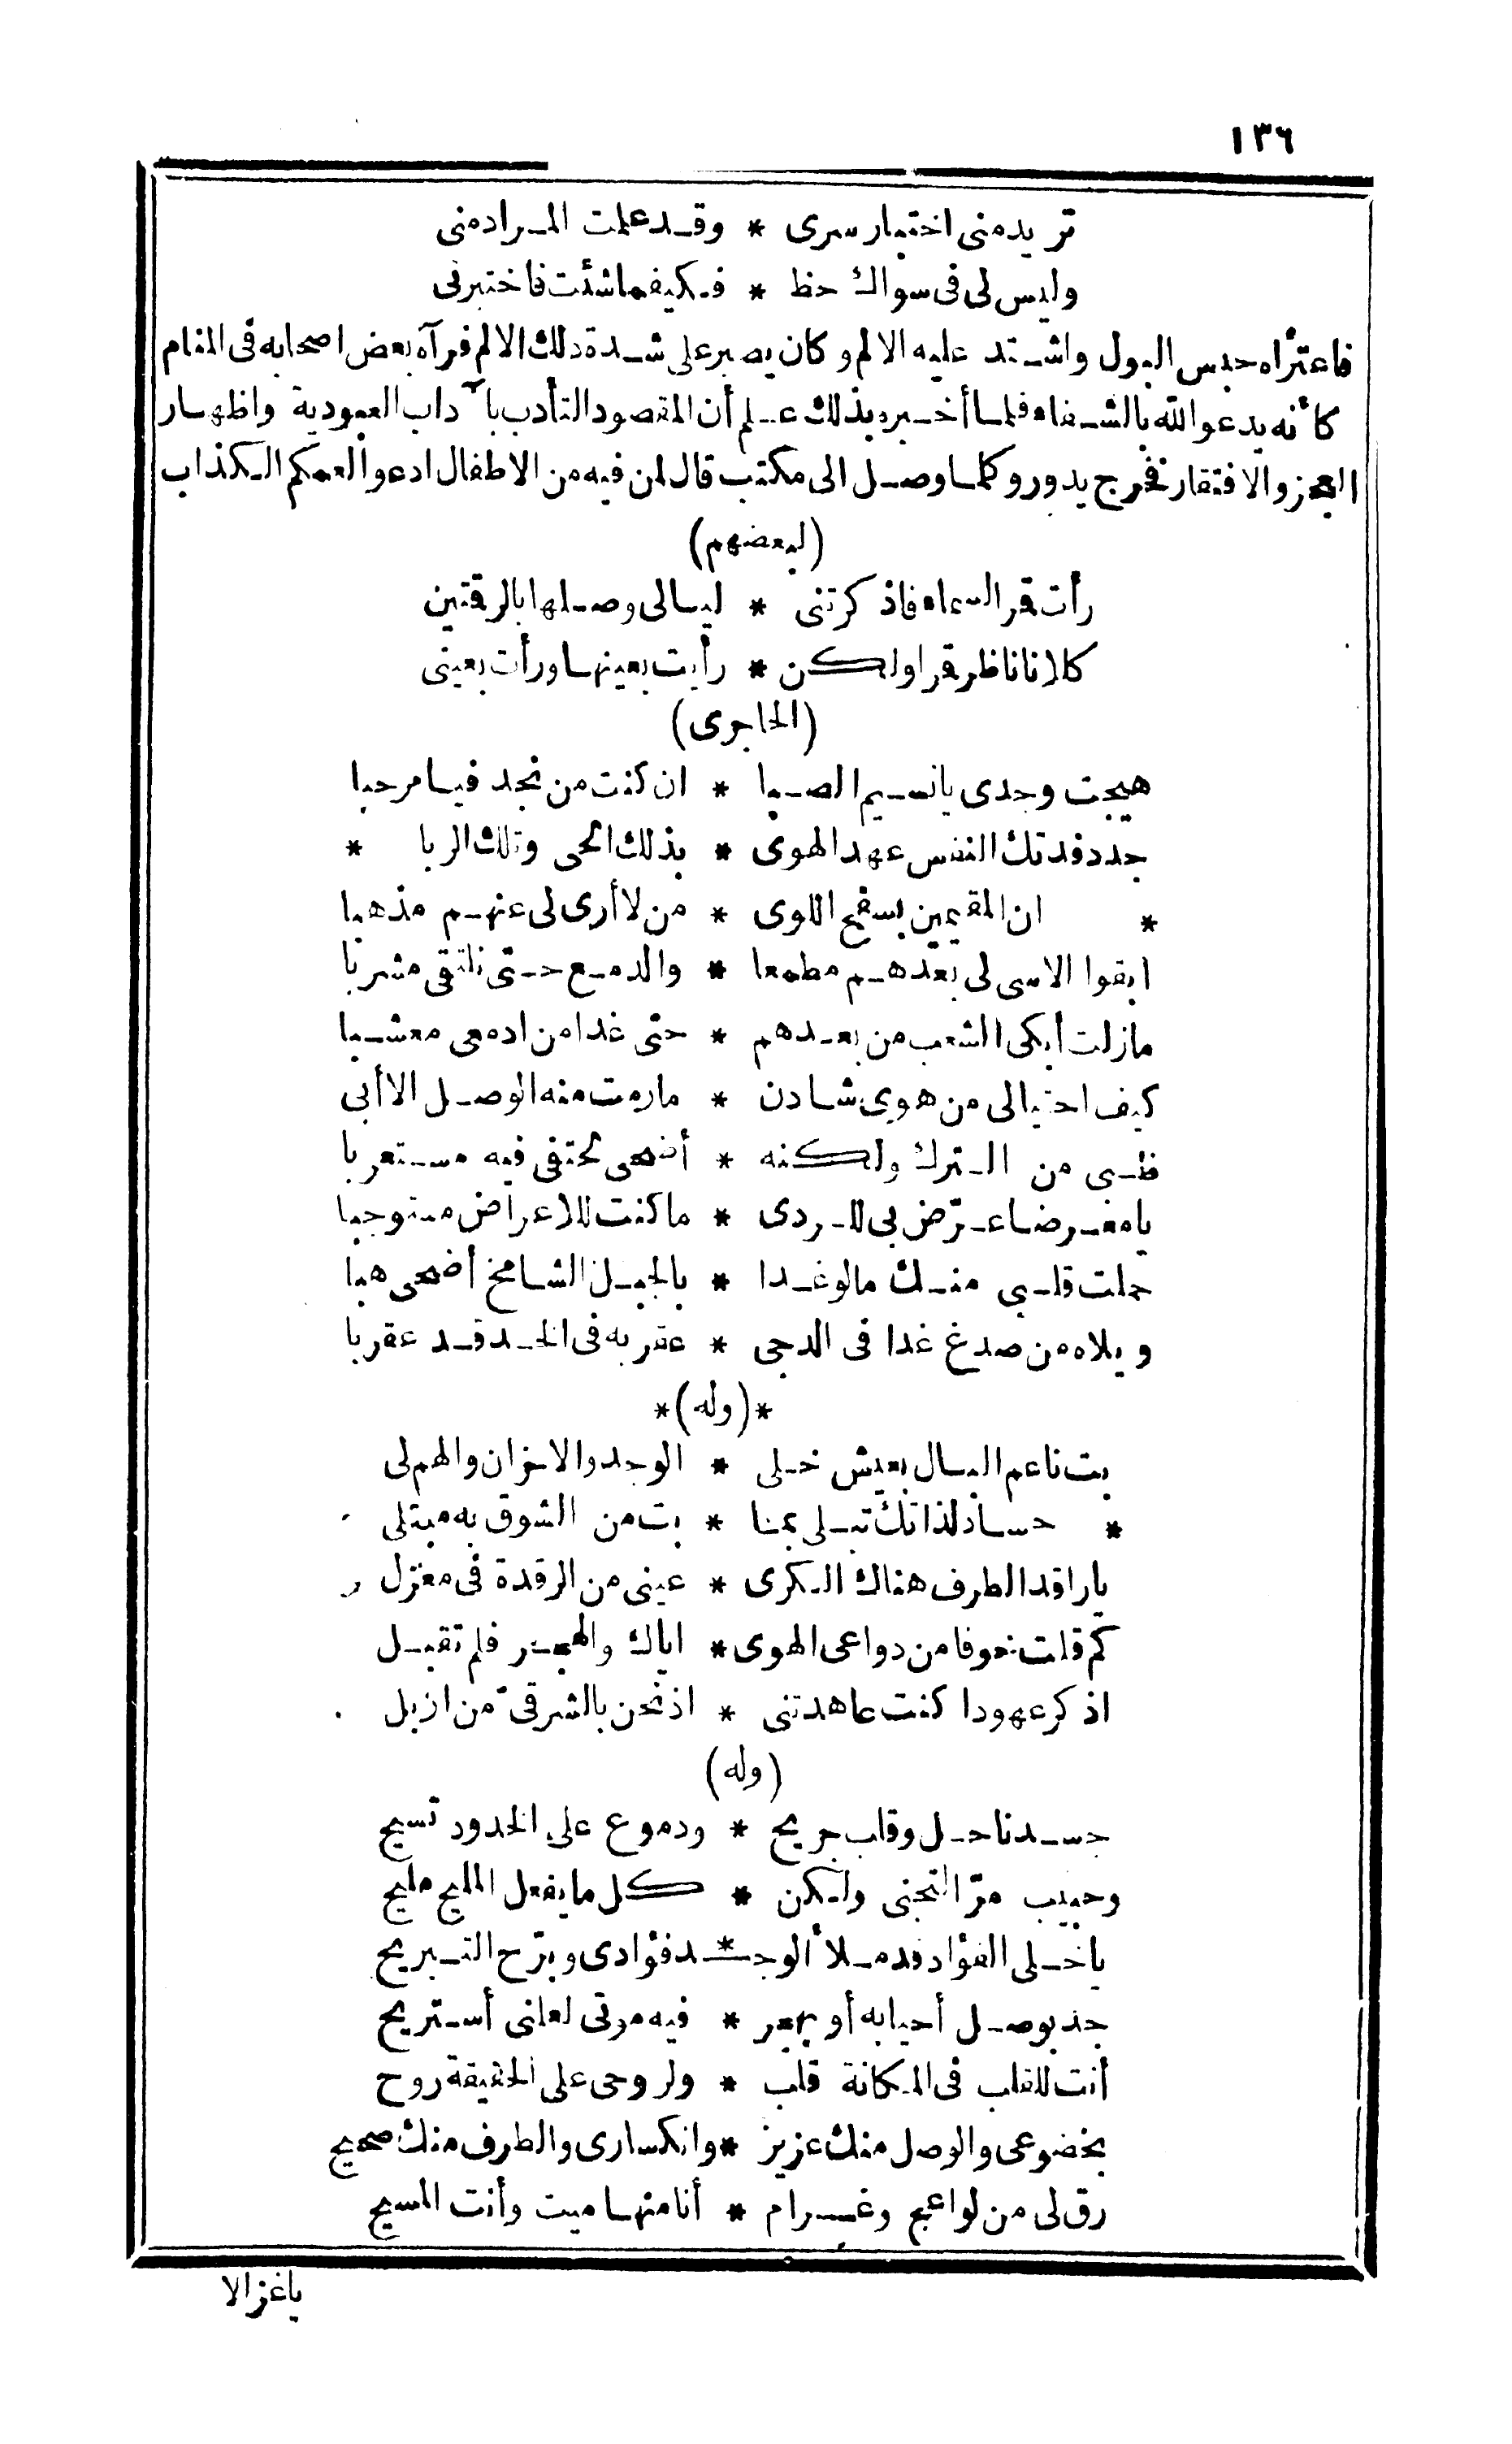 ١٣٦
تريد منى اختبار سرى * وقد علمت المراد منى
وليس لى فى سواك حظ * فكيفما شئت فاختبرنى
فاعتراه حبس البول واشتد عليه الالم وكان يصبر على شدة ذلك الالم فرآه بعض اصحابه فى المنام
كأنه يدعو الله بالشفاء فلما أخبره بذلك علم أن المقصود التأدب بآداب العبودية واظهار
العجز والافتقار فخرج يدور وكلما وصل الى مكتب قال لمن فيه من الاطفال ادعوا لعمكم الكذاب
(لبعضهم)
رأت قمر السماء فاذكرتنى * ليالى وصلها بالرقتين
كلانا ناظر قمرا ولكن * رأيت بعينها ورأت بعينى
(الحاجرى)
هيجت وجدى يانسيم الصبا * ان كنت من نجد فيا مرحبا
جدد فدتك النفس عهد الهوى * بذلك الحى وتلك الربا *
* ان المقيمين بسفح اللوى * من لا أرى لى عنهم مذهبا
ابقوا الاسى لى بعدهم مطمعا * والدمع حتى نلتقى مشربا
مازلت أبكى الشعب من بعدهم * حتى غدا من ادمعى معشبا
كيف احتيالى من هوى شادن * مارمت منه الوصل الا أبى
ظبى من الترك ولكنه * أضحى لحتفى فيه مستعربا
يامعرضا عرّض بى للردى * ما كنت للاعراض مستوجبا
حملت قلبى منك مالو غدا * بالجبل الشامخ أضحى هبا
ويلاه من صدغ غدا فى الدجى * عقربه فى الخد قد عقربا
*(وله)*
بت ناعم البال بعيش خلى * الوجد والاحزان والهم لى
* حساد لذاتك تبلى بمنا * بت من الشوق به مبتلى
ياراقد الطرف هناك الكرى * عينى من الرقدة فى معزل
كم قلت خوفا من دواعى الهوى * اياك والهجر فلم تقبل
اذكر عهودا كنت عاهدتنى * اذ نحن بالشرقى من اربل
(وله)
جسد ناحل وقلب جريح * ودموع على الخدود تسيح
وحبيب مرّ التجنى ولكن * كل مايفعل المليح مليح
ياخلى الفؤاد قد ملأ الوجـ * ـد فؤادى وبرّح التبريح
جد بوصل أحيا به أو بهجر * فيه موتى لعلنى أستريح
أنت للقلب فى المكانة قلب * ولروحى على الحقيقة روح
بخضوعى والوصل منك عزيز * وانكسارى والطرف منك صحيح
رق لى من لواعج وغرام * أنا منها ميت وأنت المسيح
ياغزالا